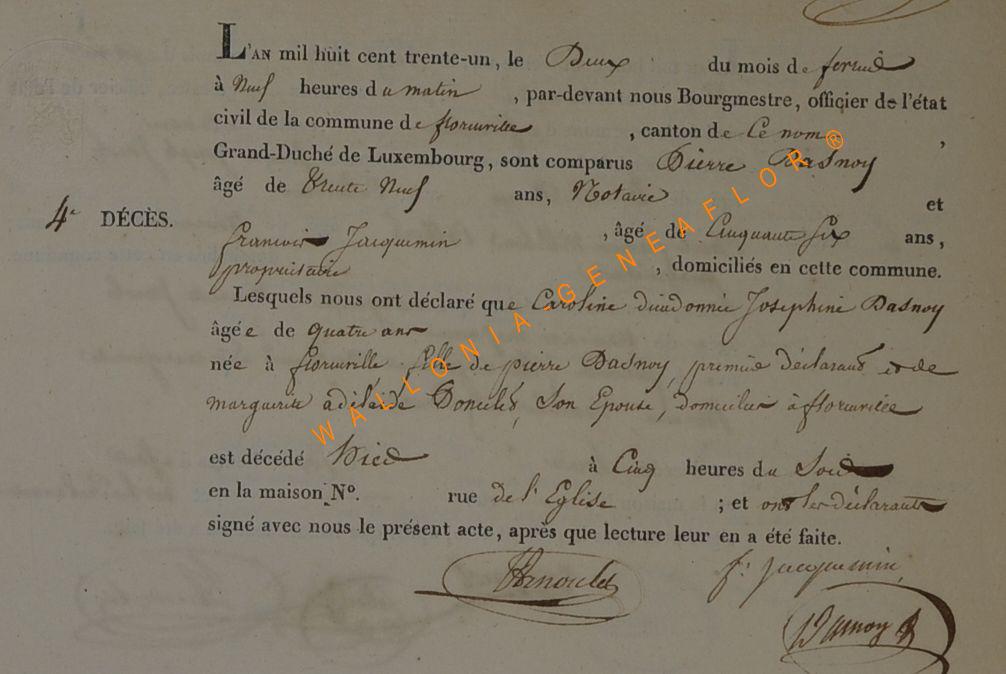 L'AN mil huit cent trente-un, le Deux du mois de fevrier
à Neuf heures du matin, par-devant nous Bourgmestre, officier de l'état
civil de la commune de florenville, canton de Ce nom,
Grand-Duché de Luxembourg, sont comparus Pierre Dasnoy
âgé de Trente Neuf ans, Notaire et
4e DÉCÈS.
francois Jacquemin, âgé de Cinquante Six ans,
propriétaire, domiciliés en cette commune.
Lesquels nous ont déclaré que Caroline dieudonnée Josephine Dasnoy
âgée de quatre ans
née à florenville fille de pierre Dasnoy, premier déclarant et de
marguerite adélaïde, Son Epouse, domiciliés à florenville
est décédé hier à Cinq heures du Soir
en la maison N°. rue de l'Eglise ; et ont les déclarants
signé avec nous le présent acte, après que lecture leur en a été faite.
f. Jacquemin
Dasnoy
WALLONIA-GENEAFLOR®